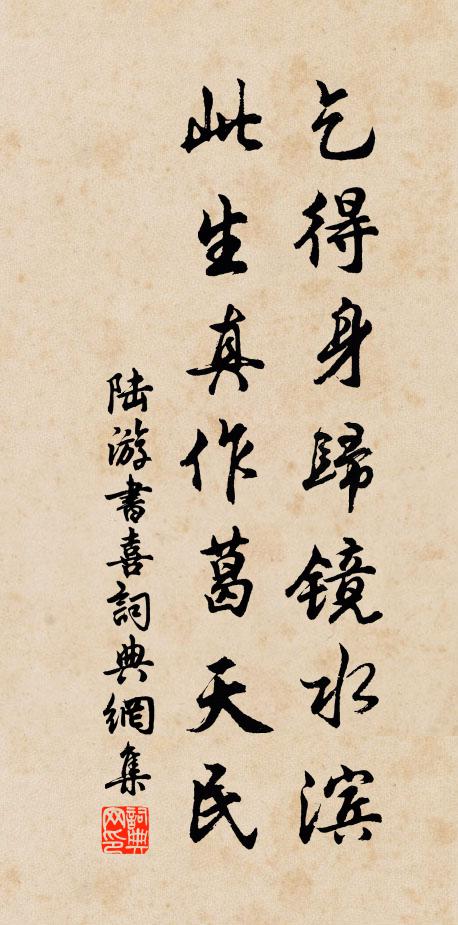 乞得身歸鏡水滨
此生真作葛天民
陆游書喜詞典網集
詞典网印